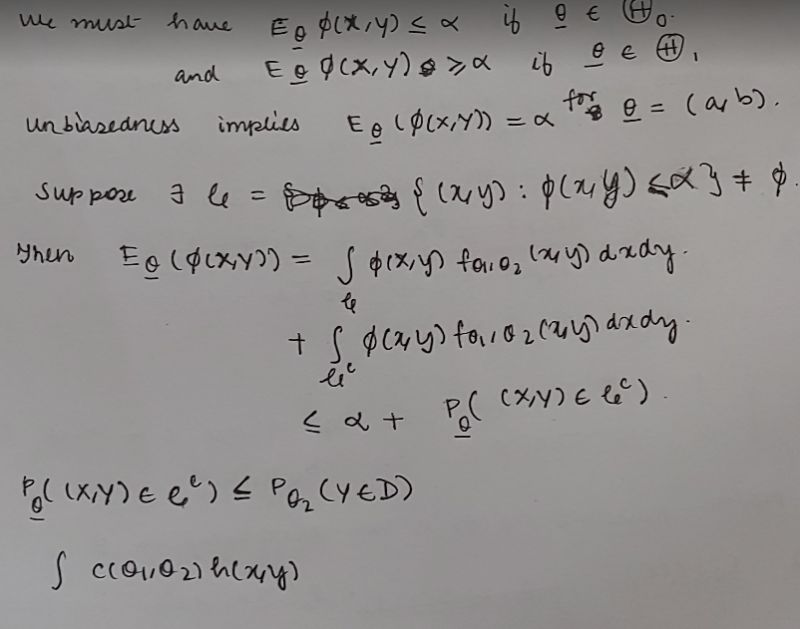 We must have E_θ ϕ(X,Y) ≤ α if θ ∈ Ⓗ₀.
and E_θ ϕ(X,Y) ≥ α if θ ∈ Ⓗ₁
unbiasedness implies E_θ (ϕ(X,Y)) = α for θ = (a,b).
Suppose ∃ 𝒞 = {(x,y) : ϕ(x,y) ≤ α} ≠ ϕ.
Then E_θ (ϕ(X,Y)) = ∫_𝒞 ϕ(x,y) f_θ₁,θ₂ (x,y) dxdy.
+ ∫_𝒞ᶜ ϕ(x,y) f_θ₁,θ₂ (x,y) dxdy.
≤ α + P_θ( (X,Y) ∈ 𝒞ᶜ ).
P_θ( (X,Y) ∈ 𝒞ᶜ ) ≤ P_θ₂ (Y ∈ D)
∫ c(θ₁,θ₂) h(x,y)